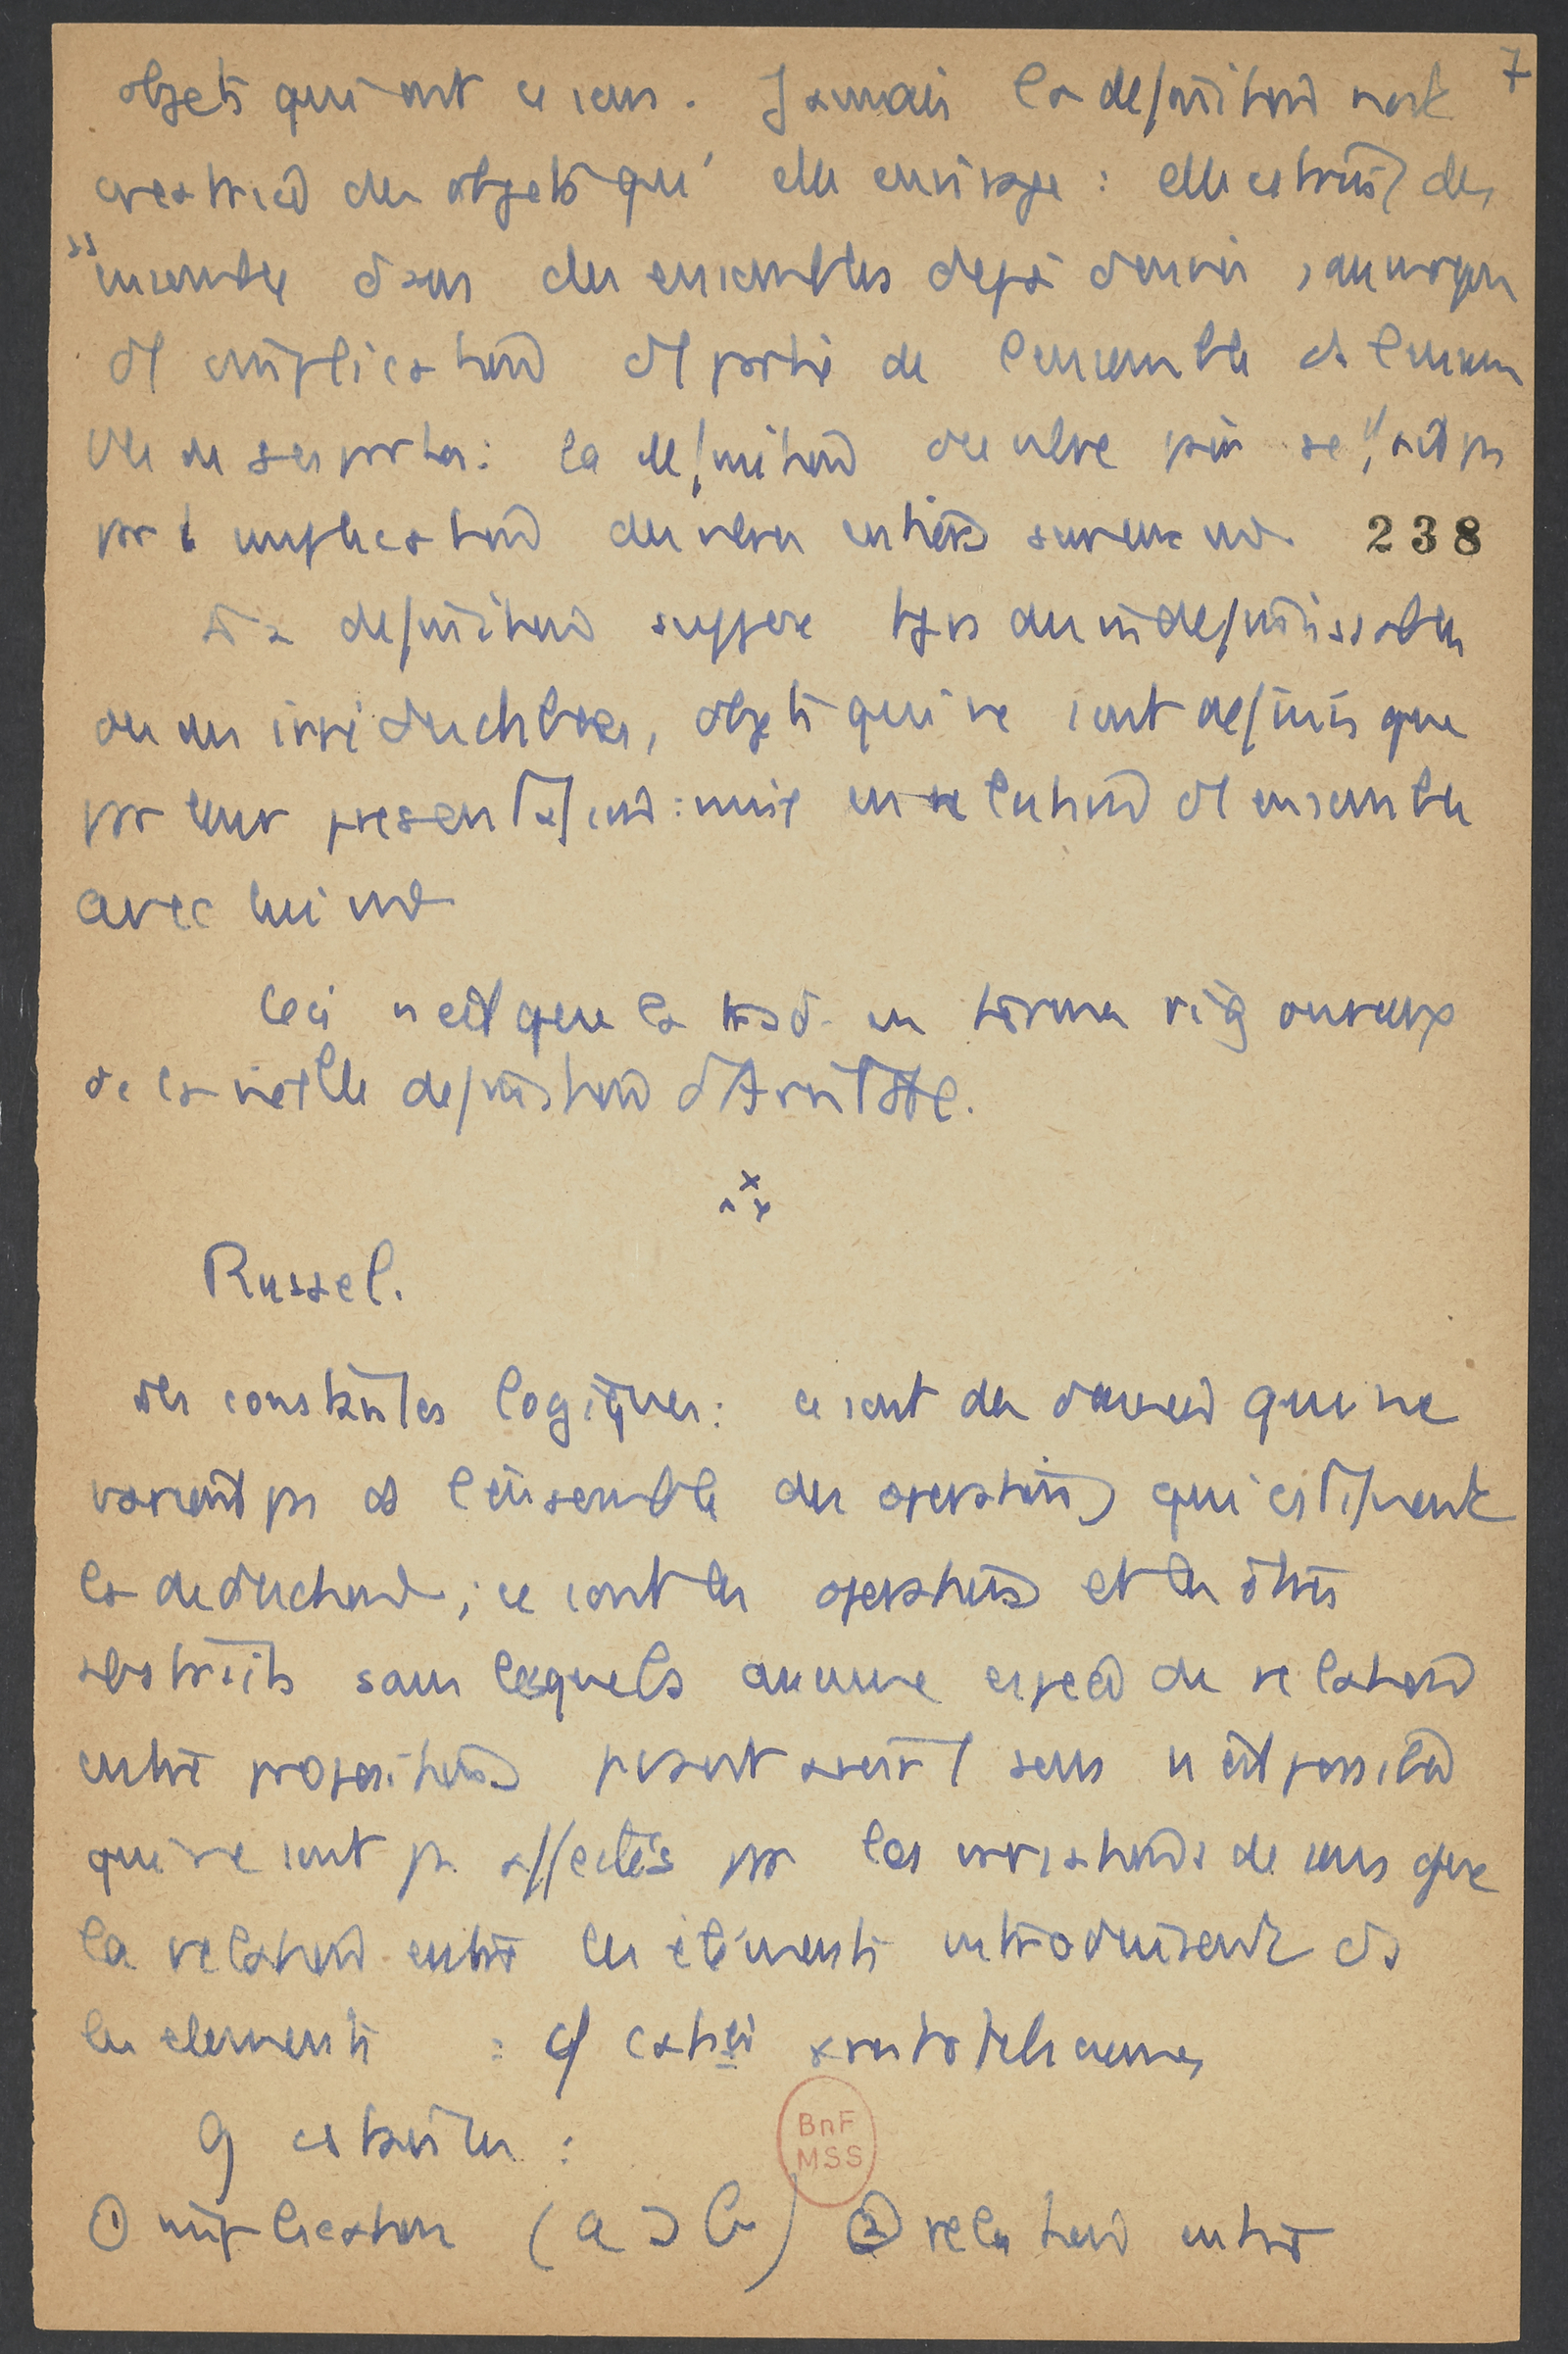 objets qui ont ce sens. Jamais la definition n'est 7
creatrice des objets qu'elle envisage : elle construit des
ss ensemble dans des ensembles deja donnés, au moyen
d'implication et partie de l'ensemble et l'ensem
ble de ses parties : la definition de nbre pair se fait pr
par l' implication des nbres entiers sur eux md. 238
La definition suppose tjrs des indefinissables
ou des irréductibles, objets qui ne sont definis que
par leur presentation : mise en relation d'ensembles
avec lui md
Ceci n'est que la trad. en termes rigoureux
de la vieille definition d'Aristote.
Russel.
Les constantes logiques : ce sont des données qui ne
varient ps ds l'ensemble des operations qui constituent
la deduction ; ce sont les operations et les êtres
abstraits sans lesquels aucune espece de relation
entre propositions pvant avoir 1 sens n'est possible
qui ne sont ps affectés par les variations de sens que
la relation entre les éléments introduisent ds
les elements : cf categ aristoteliciennes
9 constantes :
① implication (a ⊃ b) ② relation entre
BnF
MSS